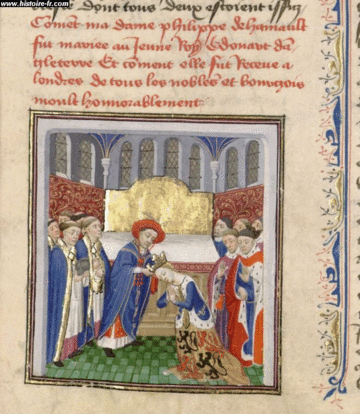 www.histoire-fr.com
dont tous deux estoient issus
Coment ma dame phelippe de haynault
fut mariee au Jeune Roy Edouart dan
gleterre Et coment elle fut Receue a
londres de tous les nobles et bourgois
moult honnorablement